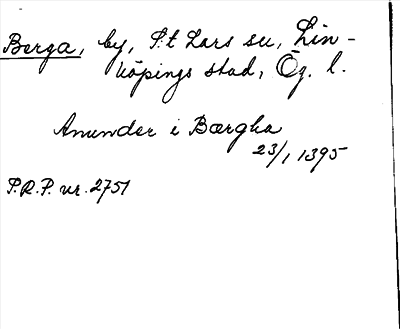 Berga, by, S:t Lars sn, Lin-
köpings stad, Ög. l.
Anunder i Bærgha
23/1 1395
P.R.P. nr. 2751